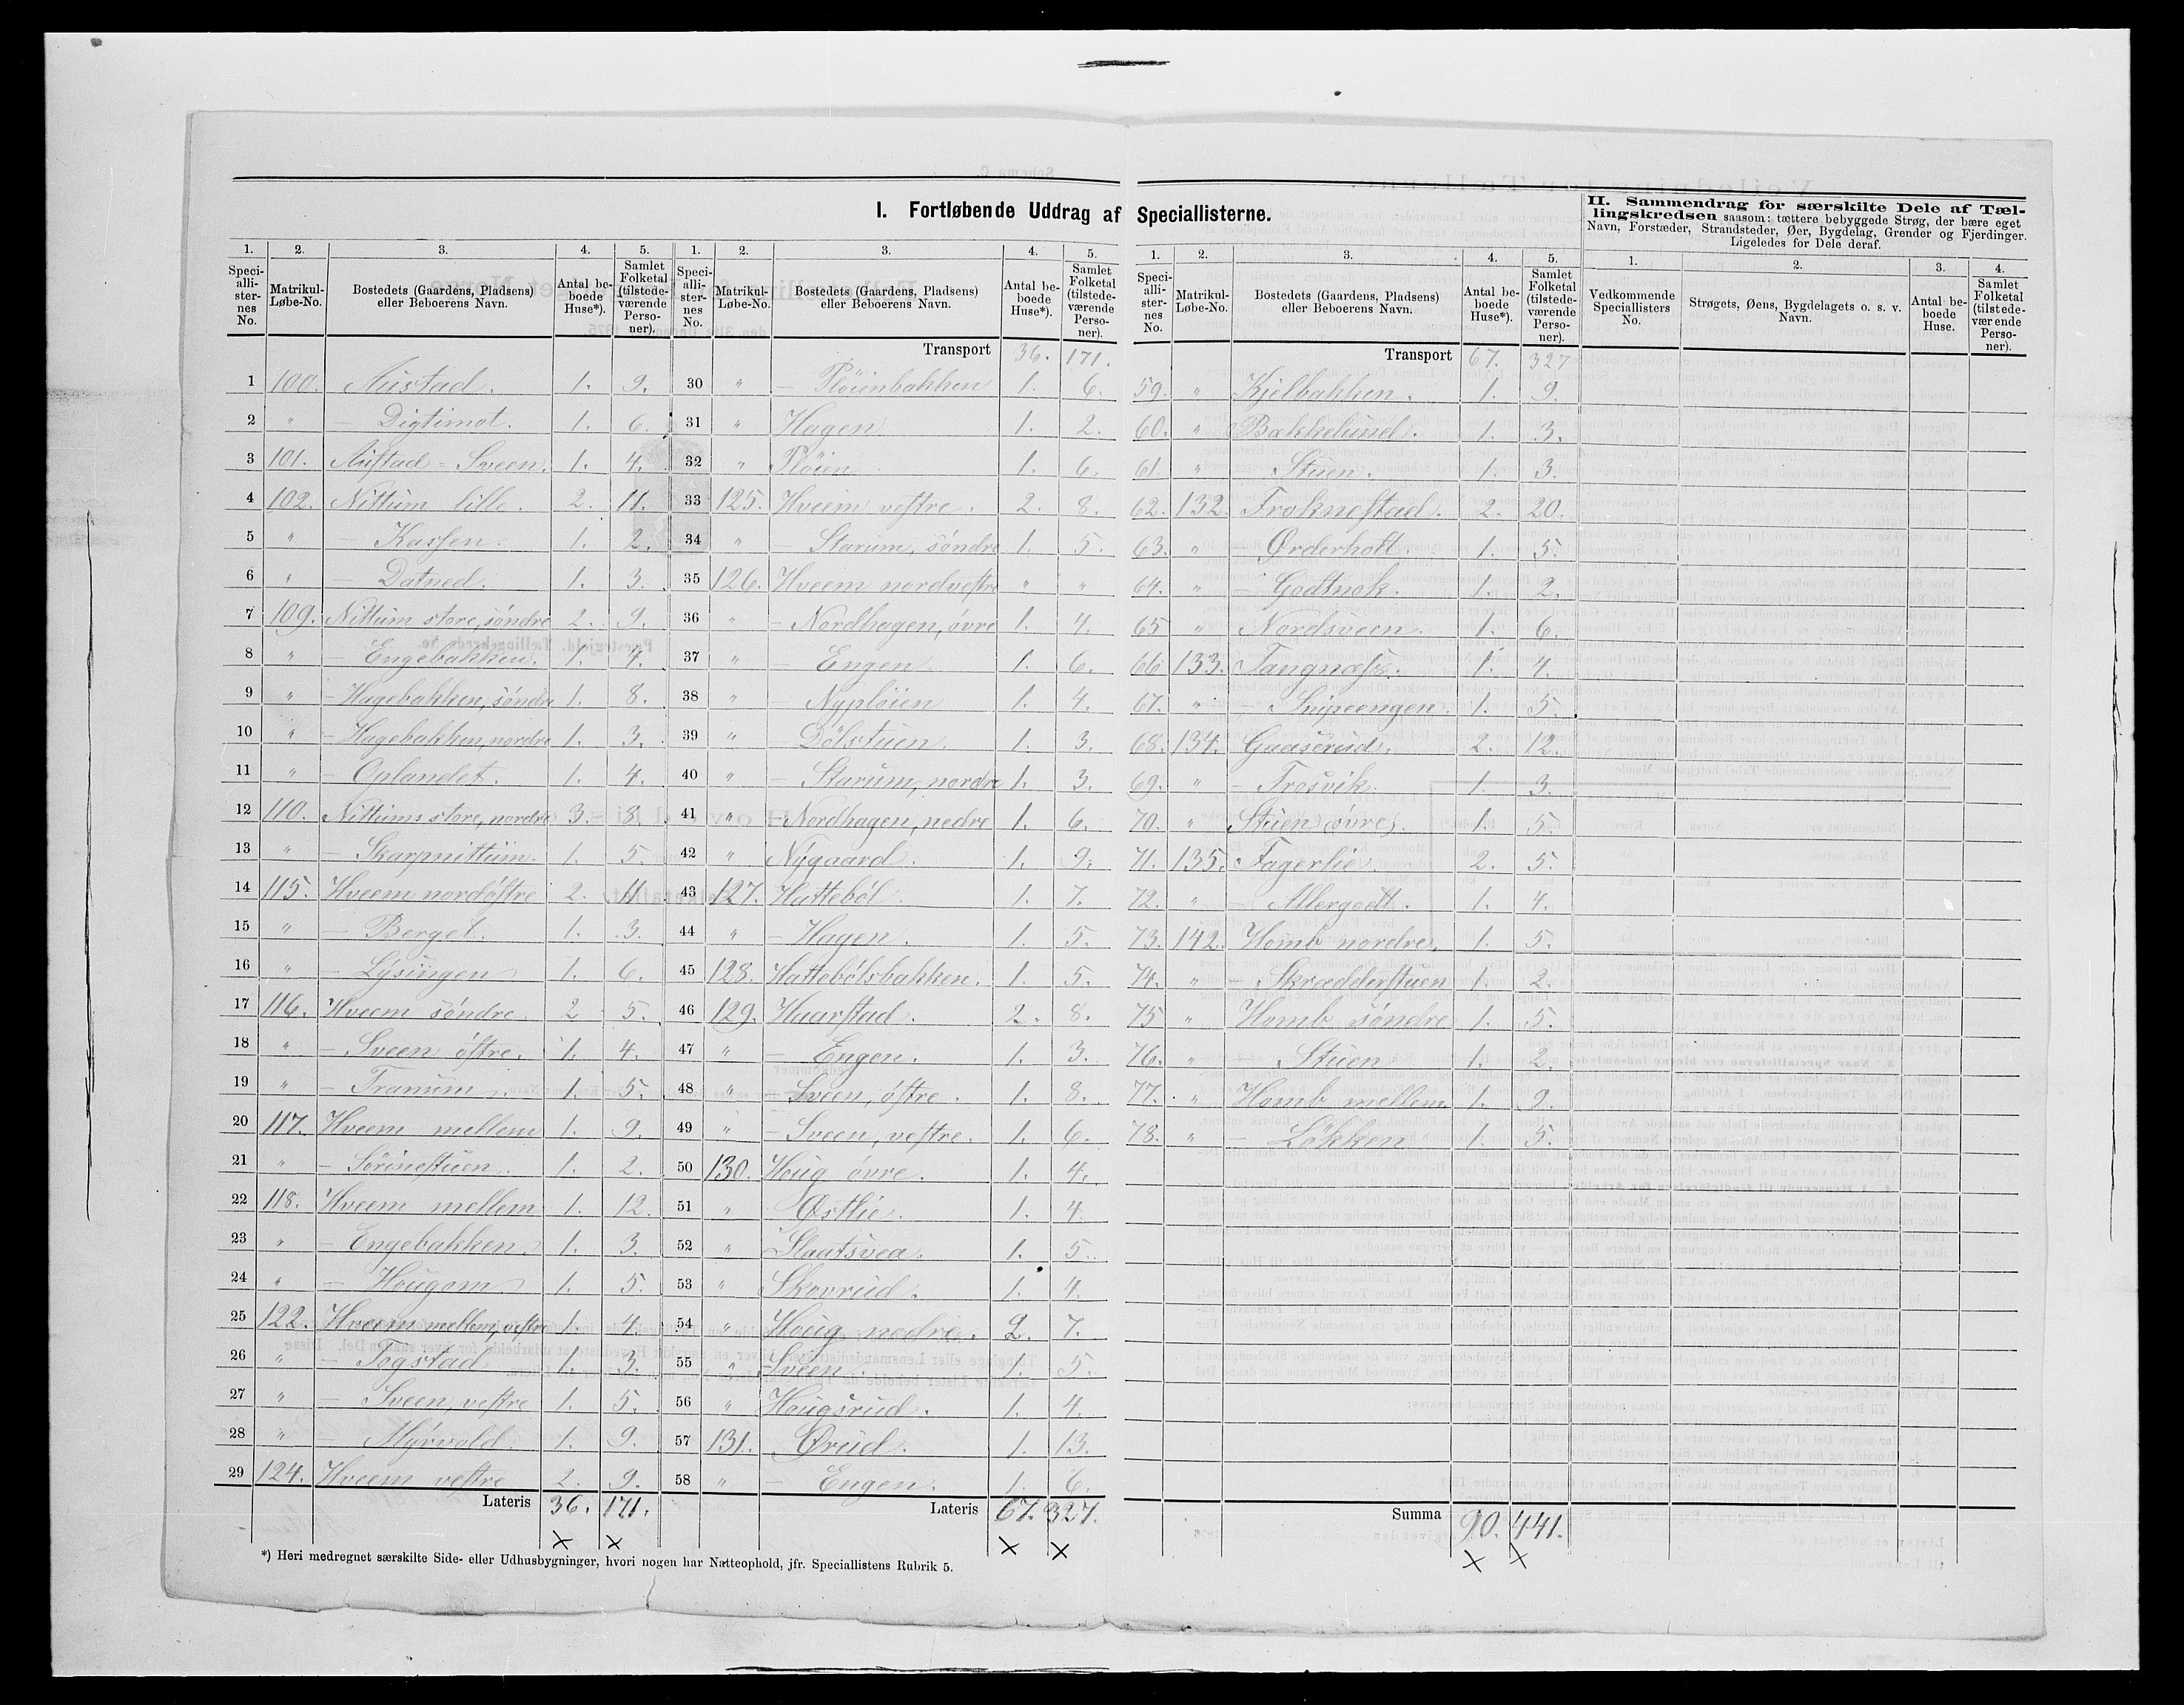 I. Fortløbende Uddrag af Speciallisterne.
II. Sammendrag for særskilte Dele af Tællingskredsen saasom: tættere bebyggede Strøg, der bære eget Navn, Forstæder, Strandsteder, Øer, Bygdelag, Grender og Fjerdinger. Ligeledes for Dele deraf.
1. 2. 3. 4. 5. 1. 2. 3. 4. 5. 1. 2. 3. 4. 5. 1. 2. 3. 4.
Speciallisternes No. Matrikul-Løbe-No. Bostedets (Gaardens, Pladsens) eller Beboerens Navn. Antal beboede Huse*). Samlet Folketal (tilstedeværende Personer).
Speciallisternes No. Matrikul-Løbe-No. Bostedets (Gaardens, Pladsens) eller Beboerens Navn. Antal beboede Huse*). Samlet Folketal (tilstedeværende Personer).
Speciallisternes No. Matrikul-Løbe-No. Bostedets (Gaardens, Pladsens) eller Beboerens Navn. Antal beboede Huse*). Samlet Folketal (tilstedeværende Personer).
Vedkommende Speciallisters No. Strøgets, Øens, Bygdelagets o. s. v. Navn. Antal beboede Huse. Samlet Folketal (tilstedeværende Personer).
1 100. Austad. 1. 9.
2 " — Digtimot. 1. 6.
3 101. Austad = Sveen. 1. 4.
4 102. Nittum lille. 2. 11.
5 " — Kassen. 1. 2.
6 " — Datned. 1. 3.
7 109. Nittum store, söndre 2. 9.
8 " — Engebakken. 1. 4.
9 " — Hagebakken, söndre 1. 8.
10 " — Hagebakken, nordre 1. 3.
11 " — Oplandet. 1. 4.
12 110. Nittum store, nordre 3. 8.
13 " — Skarpnittum. 1. 5.
14 115. Hveem nordöstre 2. 11.
15 " — Berget. 1. 3.
16 " — Lysingen 1. 6.
17 116. Hveem söndre 2 5.
18 " — Sveen östre. 1. 4.
19 " — Tranum. 1. 5.
20 117. Hveem mellem 1. 9.
21 " — Sörinestuen. 1. 2.
22 118. Hveem mellem 1. 12.
23 " — Engebakken. 1. 3.
24 " — Hougom 1. 5.
25 122. Hveem mellem, vestre 1. 4.
26 " — Togstad 1. 3.
27 " — Sveen, vestre 1. 5.
28 " — Myrvold. 1. 9.
29 124. Hveem vestre 2. 9.
Lateris 36. 171.
Transport 36. 171.
30 " — Plöienbakken 1. 6.
31 " Hagen 1. 2.
32 " Plöien 1. 6.
33 125. Hveem vestre. 2. 8.
34 " — Starum, söndre 1. 5.
35 126. Hveem nordvestre " "
36 " — Nordhagen, övre 1. 4.
37 " — Engen 1. 6.
38 " — Nyplöien 1. 4.
39 " — Dölstuen. 1. 3.
40 " — Starum, nordre 1. 3.
41 " — Nordhagen, nedre 1. 6.
42 " Nygaard. 1. 9.
43 127. Hatteböl. 1. 7.
44 " — Hagen. 1. 5.
45 128. Hattebölsbakken. 1. 5.
46 129. Haarstad. 2. 8.
47 " — Engen. 1. 3.
48 " — Sveen, östre. 1. 8.
49 " — Sveen, vestre. 1. 6.
50 130. Houg övre. 1. 4.
51 " Østlie. 1. 4.
52 " Slaatsvea. 1. 5.
53 " Skovrud. 1. 4.
54 " Houg nedre. 2. 7.
55 " — Sveen. 1. 5.
56 " Hougsrud. 1. 4.
57 131. Ørud. 1. 13.
58 " — Engen. 1. 6.
Lateris 67. 327.
Transport 67. 327
59. " Kjelbakken. 1. 9.
60. " Bækkelund. 1. 3.
61. " — Stuen. 1. 3.
62. 132. Froknestad. 2. 20.
63. " — Ørderholt. 1. 5.
64. " — Godtnok. 1. 2.
65 " Nordsveen. 1. 6.
66 133. Tangnæss. 1. 4.
67. " — Snipeengen. 1. 5.
68. 134. Gaaserud. 2. 12.
69. " — Frosvik. 1. 3.
70. " Stuen övre. 1. 5.
71. 135. Fagerlie. 2. 5.
72. " — Allergodt. 1. 4.
73. 142. Homb nordre. 1. 5.
74. " — Skrædderstuen 1. 2.
75 " Homb söndre 1. 5.
76. " — Stuen 1. 2.
77. " Homb mellem 1. 9.
78. " — Lökken 1. 5.
Summa 90. 441.
*) Heri medregnet særskilte Side- eller Udhusbygninger, hvori nogen har Natteophold, jfr. Speciallistens Rubrik 5.